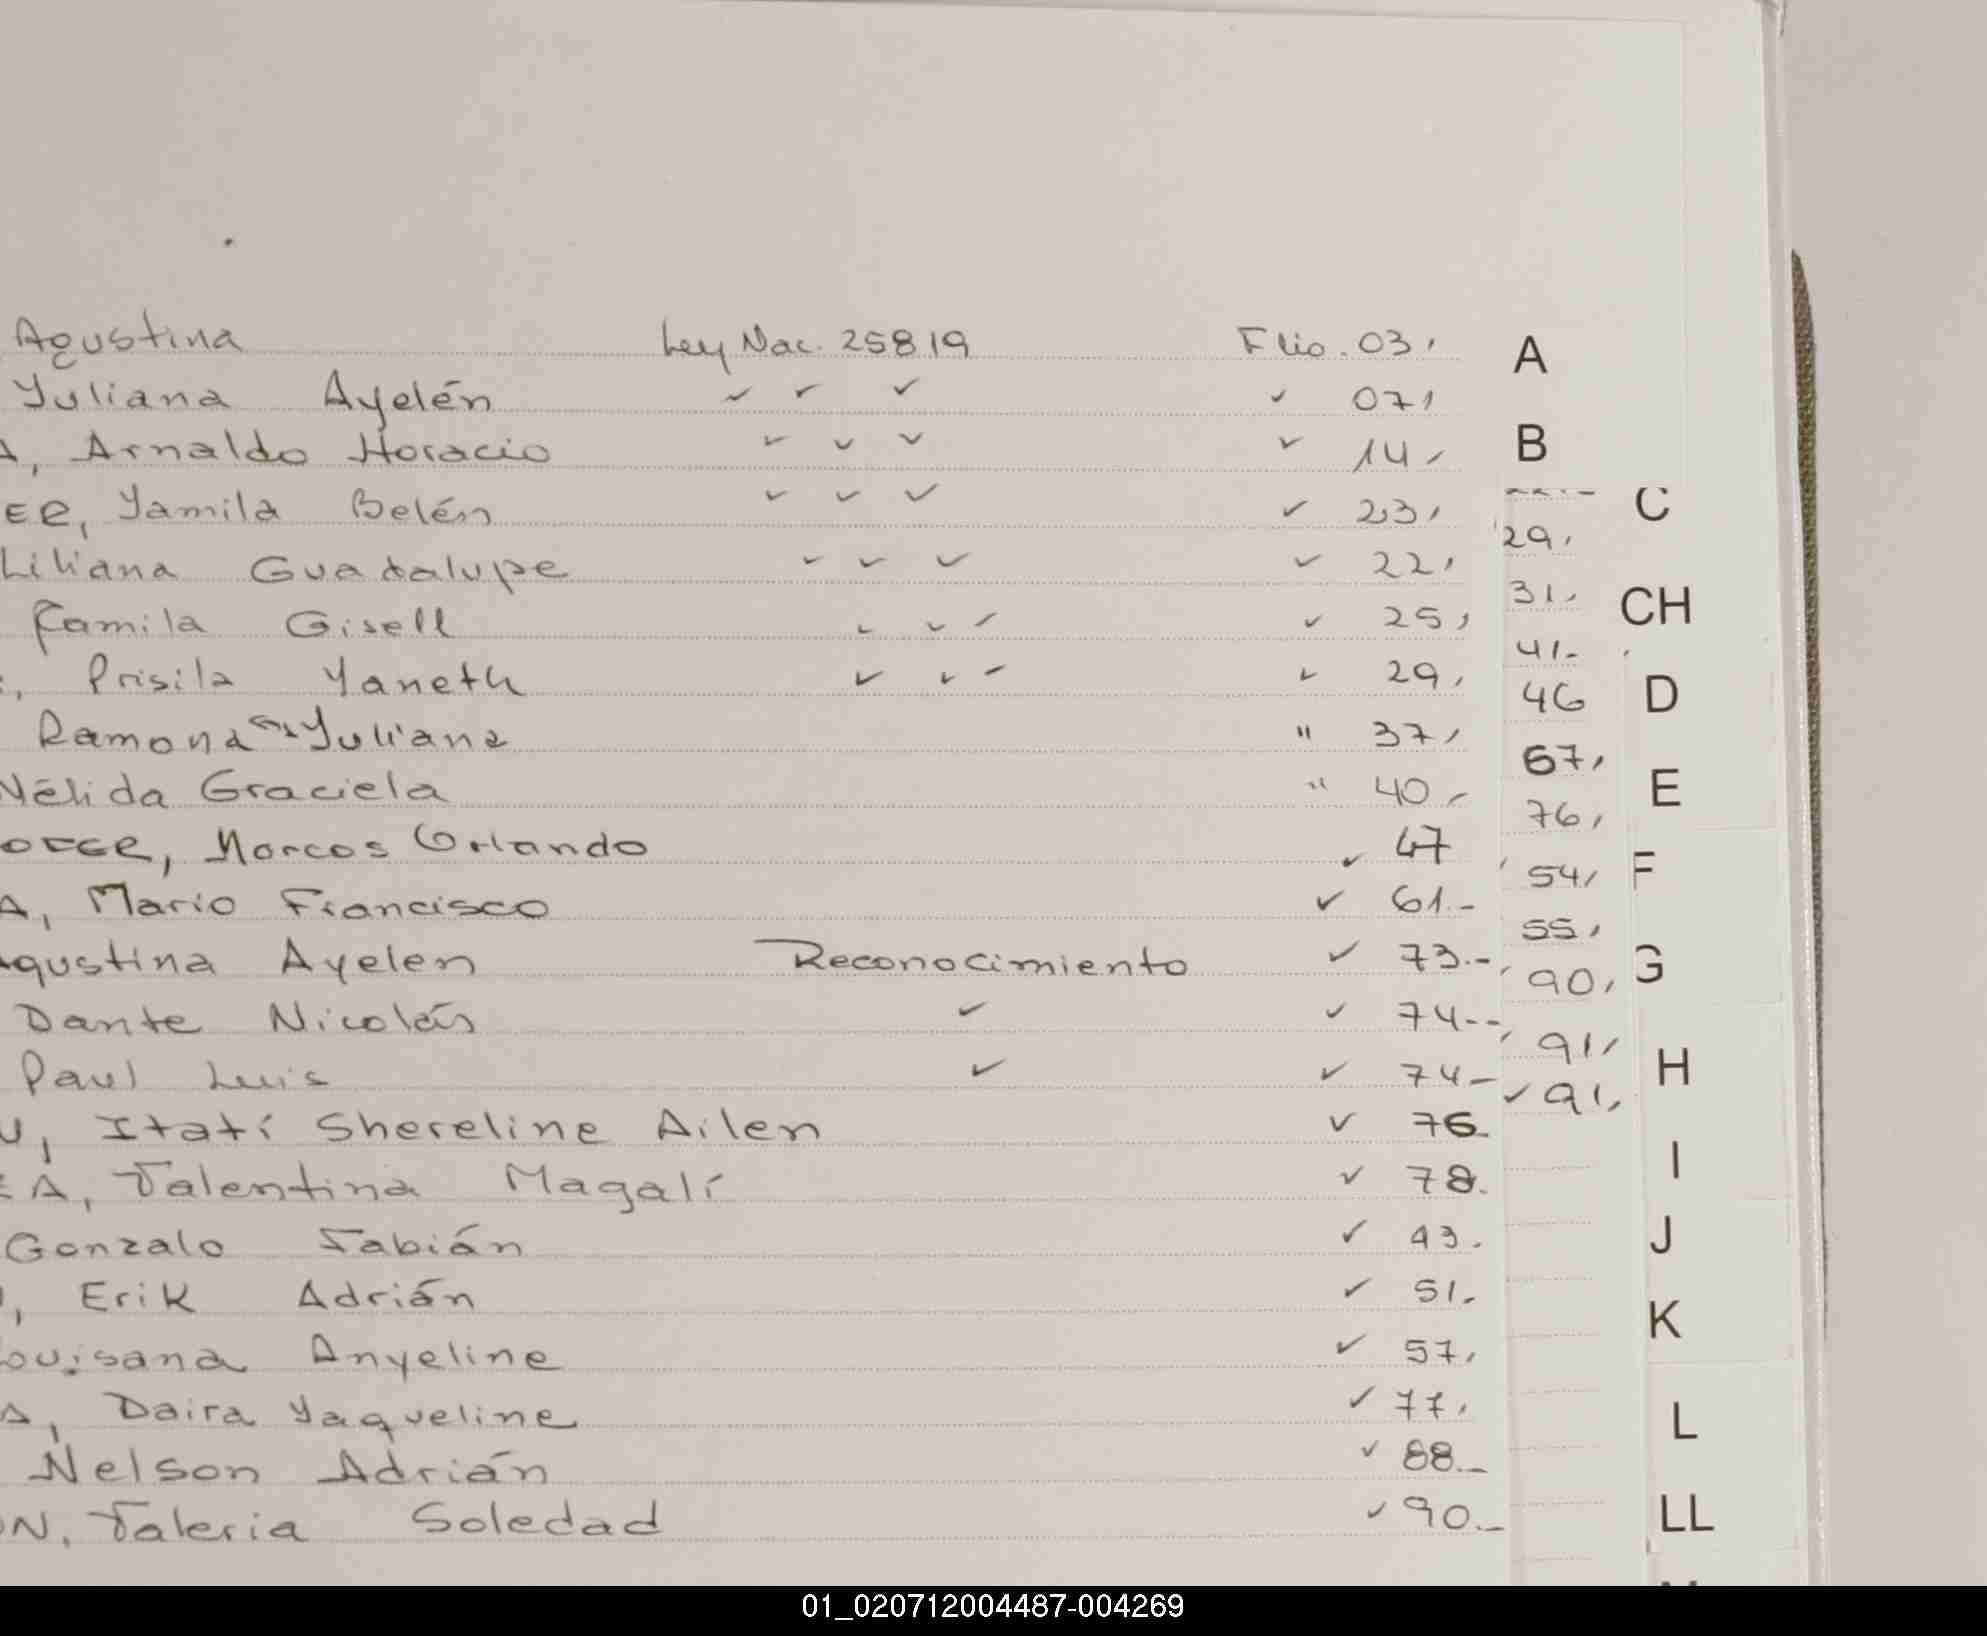 Agustina Ley Nac. 25819 Flio. 03,
Yuliana Ayelén ✓ ✓ ✓ ✓ 07,
A, Arnaldo Horacio ✓ ✓ ✓ ✓ 14,
ER, Yamila Belén ✓ ✓ ✓ ✓ 23,
Liliana Guadalupe ✓ ✓ ✓ ✓ 22,
Camila Gisell ✓ ✓ ✓ ✓ 25,
, Prisila Yaneth ✓ ✓ ✓ ✓ 29,
Ramona Yuliana " 37,
Nélida Graciela " 40,
, Marcos Orlando ✓ 47
A, Mario Francisco ✓ 61.-
Agustina Ayelen Reconocimiento ✓ 73.-
Dante Nicolás ✓ ✓ 74--
Paul Luis ✓ ✓ 74-
, Itatí Shereline Ailen ✓ 76-
EA, Valentina Magalí ✓ 78.
Gonzalo Fabián ✓ 43.
, Erik Adrián ✓ 51.
Louisana Anyeline ✓ 57,
A, Daira Yaqueline ✓ 77,
Nelson Adrián ✓ 88.-
ON, Valeria Soledad ✓ 90.-
29,
31,
41-
46
67,
76,
54,
55,
90,
91,
✓ 91,
A
B
C
CH
D
E
F
G
H
I
J
K
L
LL
01_020712004487-004269